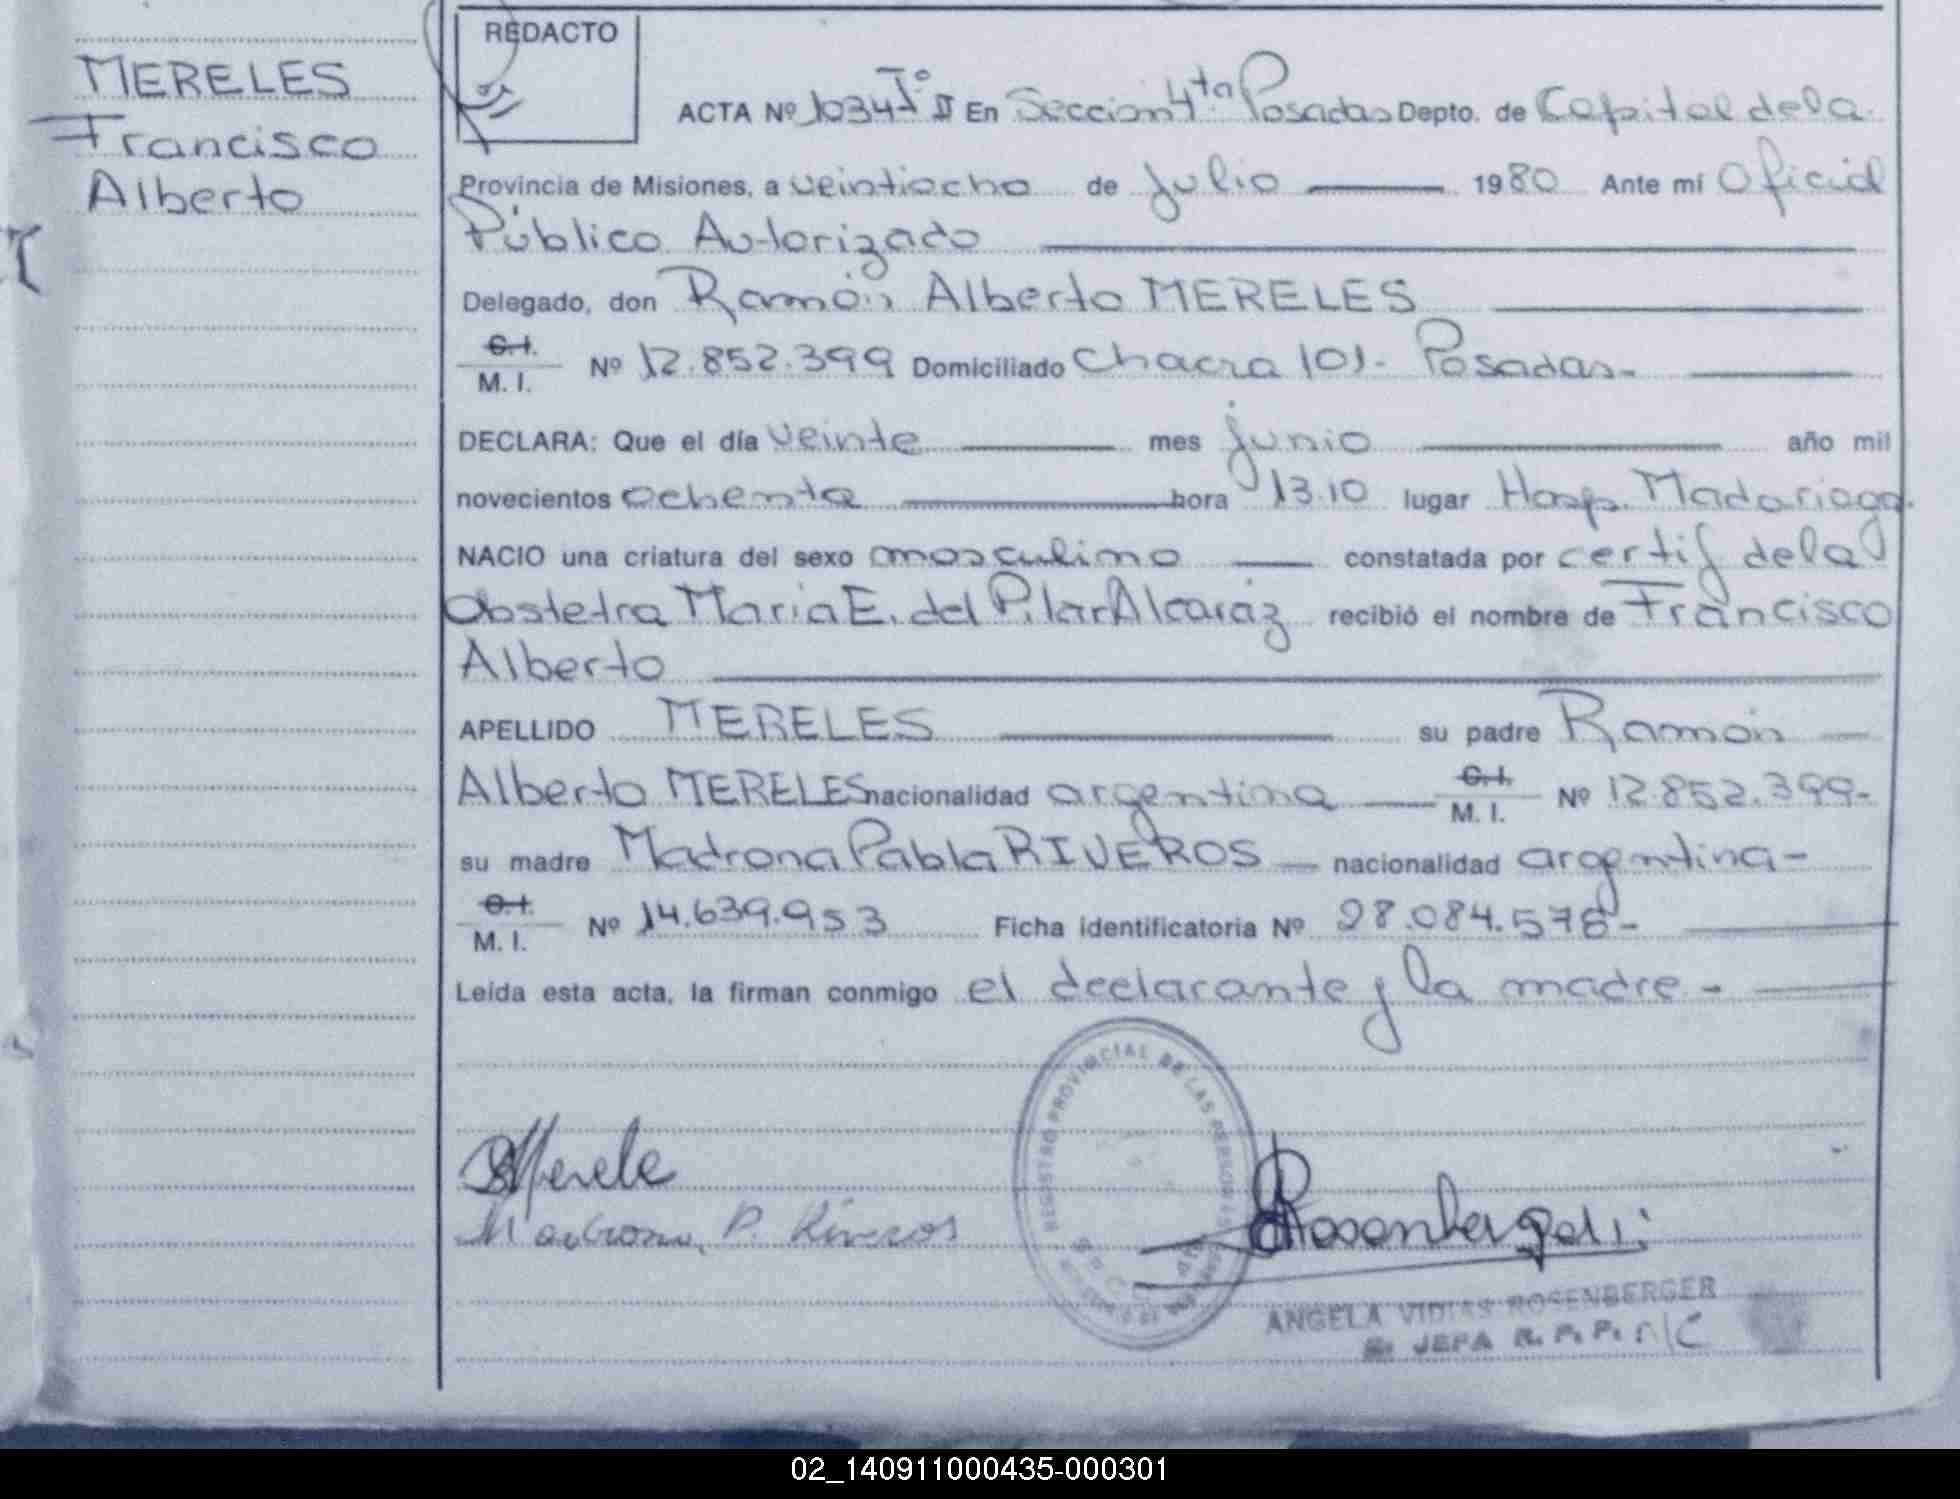 MERELES
Francisco
Alberto
REDACTO
ACTA Nº 1034 Tº II En Sección 4ta Posadas Depto. de Capital de la
Provincia de Misiones, a veintiocho de julio 1980 Ante mí Oficial
Público Autorizado
Delegado, don Ramón Alberto MERELES
C.I.
M. I. Nº 12.852.399 Domiciliado Chacra 101- Posadas-
DECLARA: Que el día veinte mes junio año mil
novecientos ochenta hora 13.10 lugar Hosp. Madariaga.
NACIO una criatura del sexo masculino constatada por certif de la
Obstetra María E. del Pilar Alcaráz recibió el nombre de Francisco
Alberto
APELLIDO MERELES su padre Ramón
Alberto MERELES nacionalidad argentina C.I. M. I. Nº 12.852.399-
su madre Madrona Pabla RIVEROS nacionalidad argentina-
C.I.
M. I. Nº 14.639.953 Ficha identificatoria Nº 28.084.578-
Leída esta acta, la firman conmigo el declarante y la madre-
REGISTRO PROVINCIAL DE LAS PERSONAS
Merele
Madrona P. Riveros
ANGELA VIDIAS ROSENBERGER
JEFA R. P. P.
02_140911000435-000301